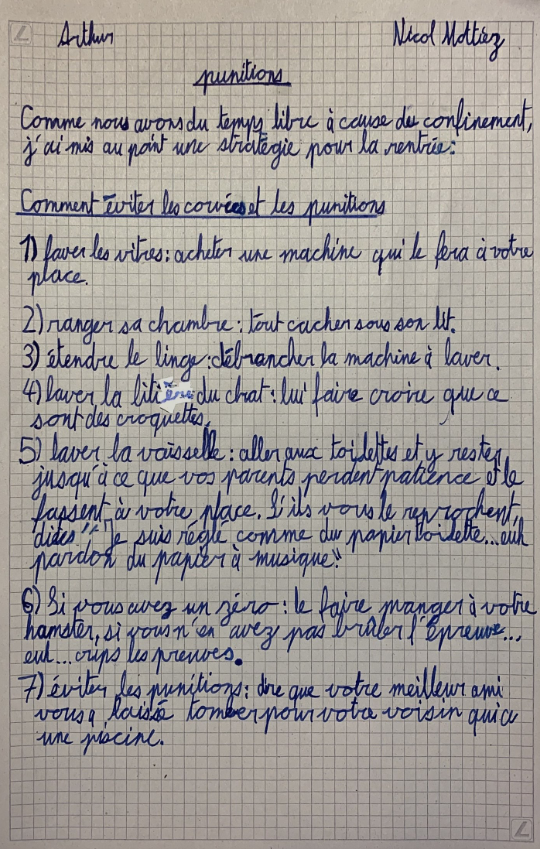 Arthur Nicol Mottiez
punitions
Comme nous avons du temps libre à cause du confinement,
j'ai mis au point une stratégie pour la rentrée:
Comment éviter les corvées et les punitions
1) laver les vitres: acheter une machine qui le fera à votre
place.
2) ranger sa chambre: tout cacher sous son lit.
3) étendre le linge: débrancher la machine à laver.
4) laver la litière du chat: lui faire croire que ce
sont des croquettes.
5) laver la vaisselle: aller aux toilettes et y rester
jusqu'à ce que vos parents perdent patience et le
fassent à votre place. S'ils vous le reprochent,
dites: "Je suis réglé comme du papier toilette...euh
pardon du papier à musique!"
6) Si vous avez un zéro: le faire manger à votre
hamster, si vous n'en avez pas brûler l'épreuve...
euh... oups les preuves.
7) éviter les punitions: dire que votre meilleur ami
vous a laissé tomber pour votre voisin qui a
une piscine.